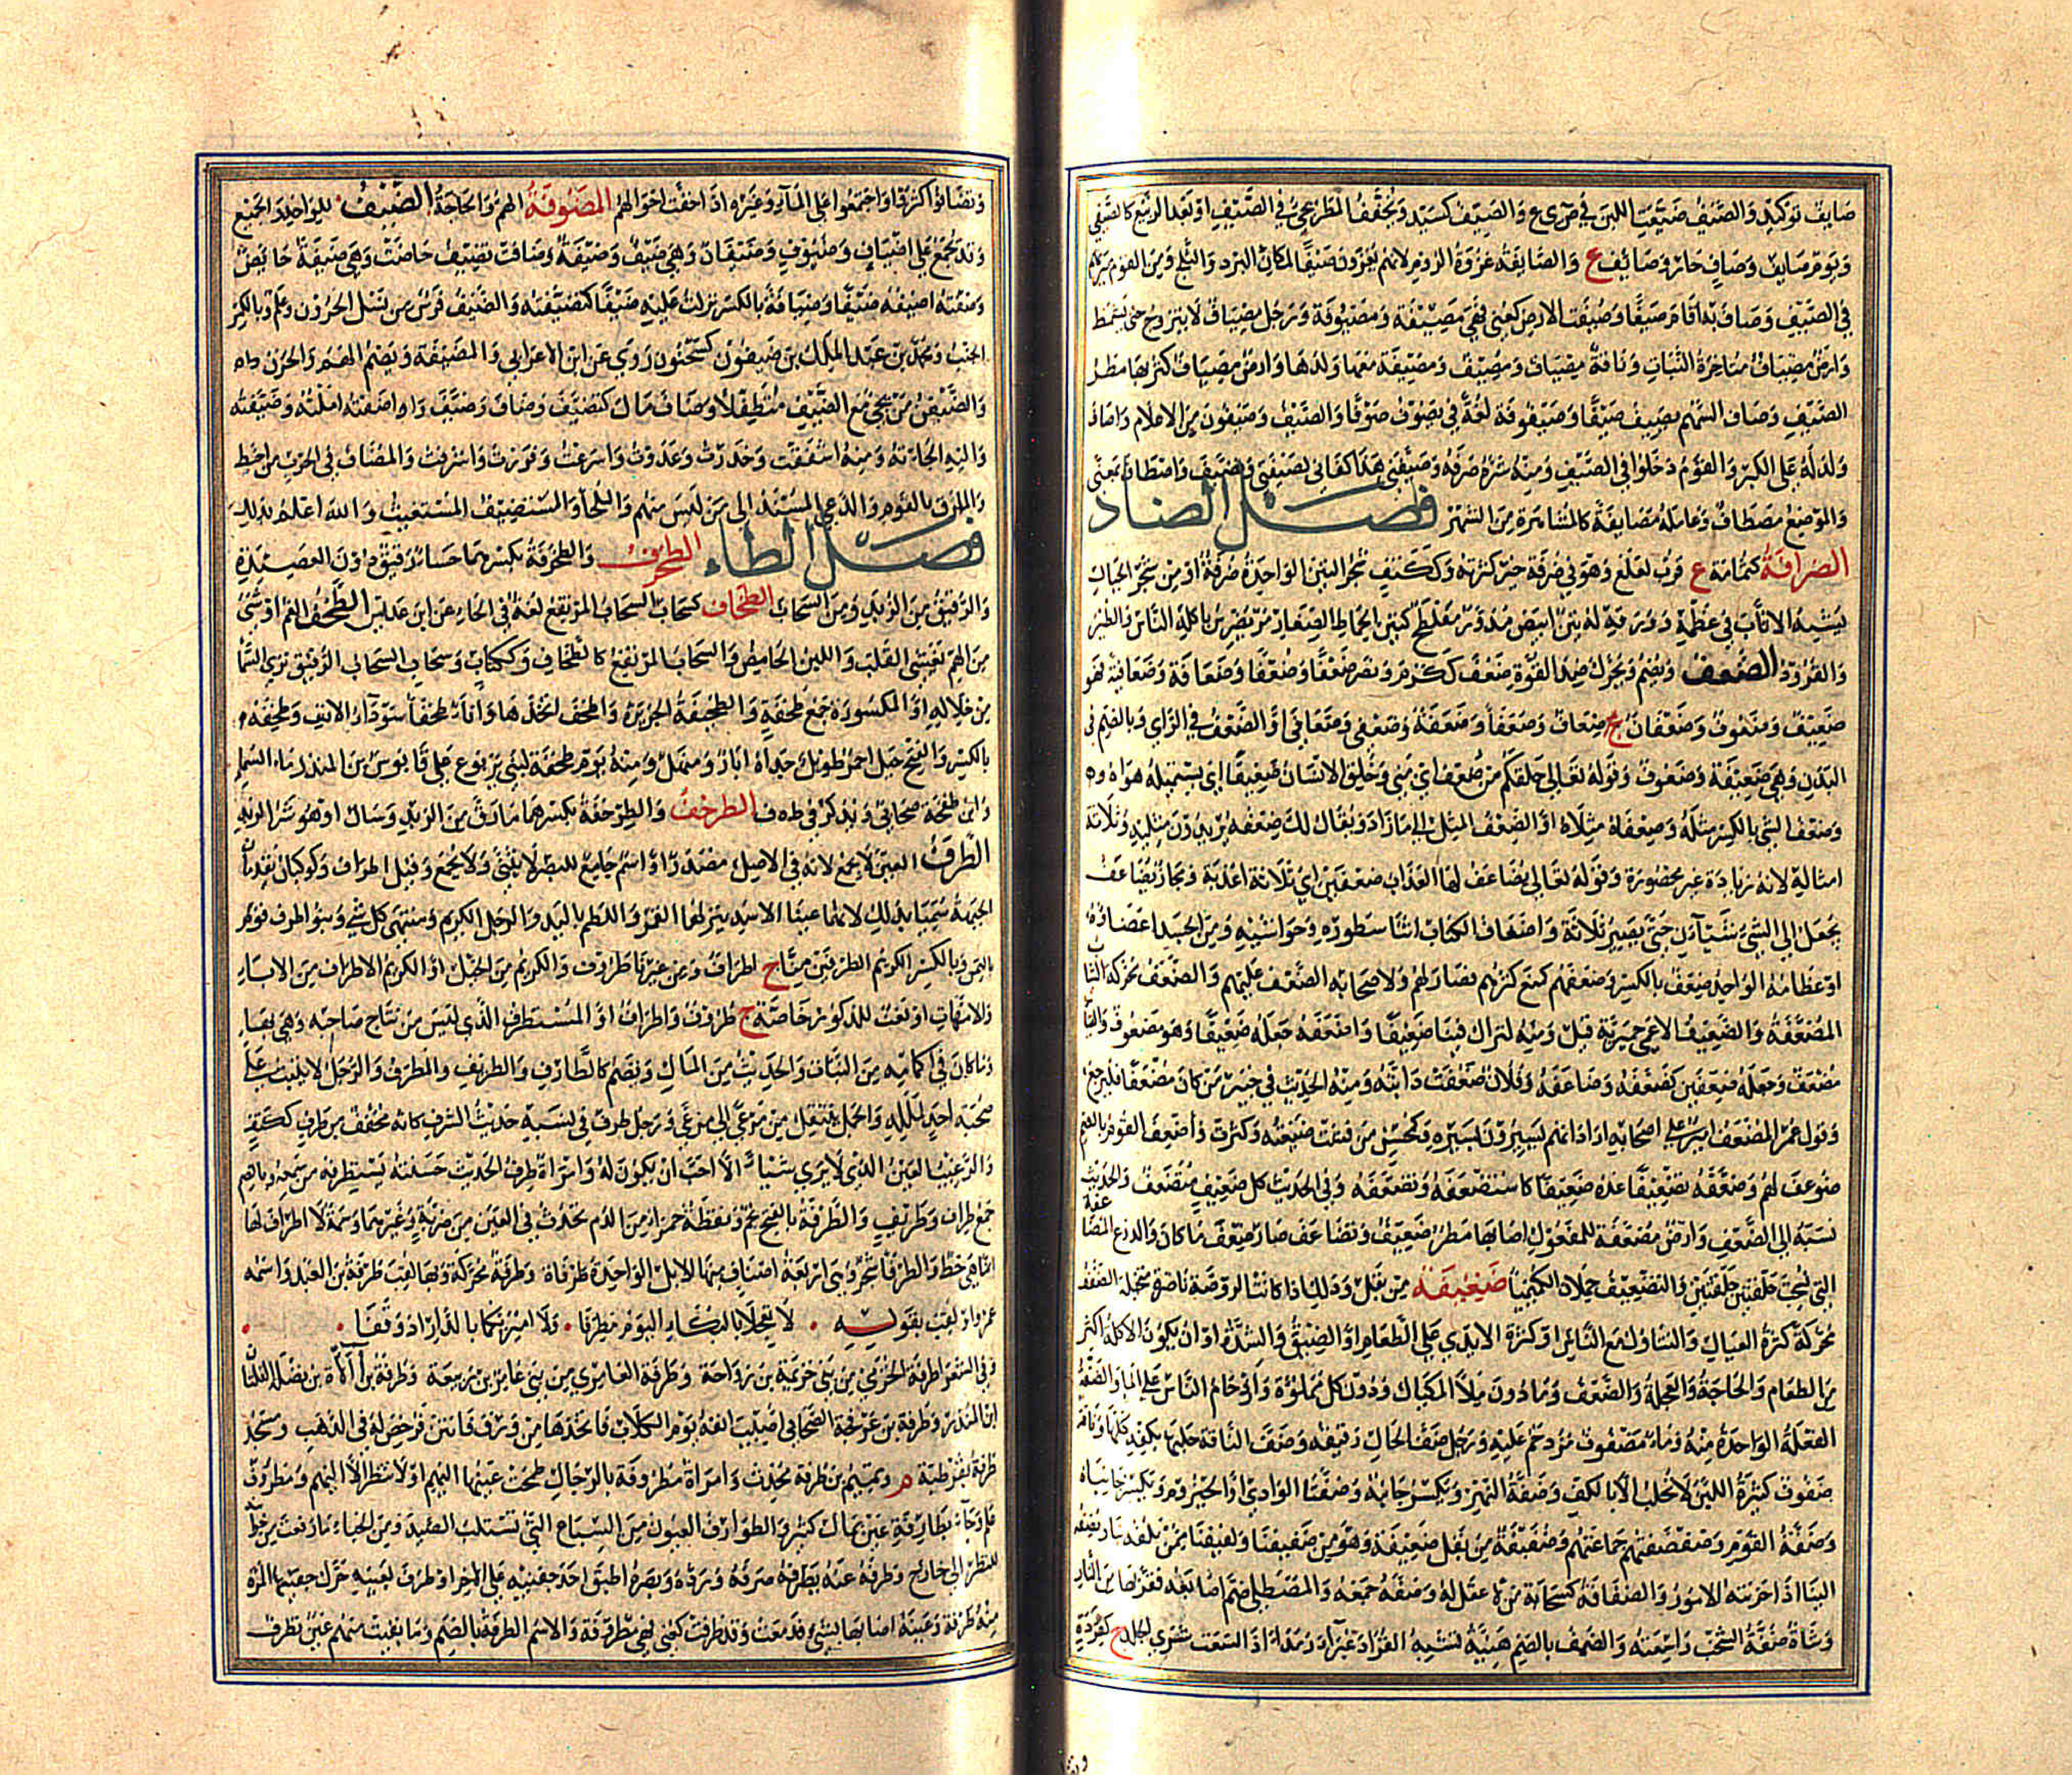 صايف توكيد والصيف ضيعت اللبن في ض ي ع والصيف كسيد ويخفف المطر يجي في الصيف او بعد الربيع كالصيفي
ويوم صايف وصاف حار وصائف ع والصايفة غزوة الروم لانهم يغزون صيفا لمكان البرد والثلج ومن القوم ميرتهم
في الصيف وصاف به اقام صيفا وصيفت الارض كعني فهي مصيفة ومصيوفة ورجل مصياف لا يتزوج حتى يشمط
وارض مصياف متاخرة النبات وناقة مصياف ومصيف ومصيفة معها ولدها وارض مصياف كثر بها مطر
الصيف وصاف السهم يصيف صيفا وصيفوفة لغة في يصوف صوفا والصيف وصيفون من الاعلام واصاف
ولد له على الكبر والقوم دخلوا في الصيف ومنه شره صرفه وصيفني هذا كفاني لصيفتي وتصيف واصطاف بمعنى
والموضع مصطاف وعامله مصايفة كالمشاهرة من الشهر فصل الضاد
الضرافة كثمامة ع قرب لعلع وهو في ضرفة خير كثرته وككتف شجر التين الواحدة ضرفة او من شجر الجبال
يشبه الاثاب في عظمه وورقه له تين ابيض مدور مفلطح كتين الحماط الصغار مر مضرس ياكله الناس والطير
والقرود الضعف ويضم ويحرك ضد القوة ضعف ككرم ونصر ضعفا وضعفا وضعافة وضعافية فهو
ضعيف وضعوف وضعفان ج ضعاف وضعفاء وضعفة وضعفى وضعافى او الضعف في الراي وبالضم في
البدن وهي ضعيفة وضعوف وقوله تعالى خلقكم من ضعف اي مني وخلق الانسان ضعيفا اي يستميله هواه وه
وضعف الشي بالكسر مثله وضعفاه مثلاه او الضعف المثل الى ما زاد ويقال لك ضعفه يريدون مثليه وثلاثة
امثاله لانه زيادة غير محصورة وقوله تعالى يضاعف لها العذاب ضعفين اي ثلاثة اعذبة ومجاز يضاعف
يجعل الى الشي شيآن حتى يصير ثلاثة واضعاف الكتاب اثنا سطوره وحواشيه ومن الجسد اعضاؤه
او عظامه الواحد ضعف بالكسر وضعفهم كمنع كثرهم فصار له ولاصحابه الضعف عليهم والضعف محركة الثياب
المضعفة والضعيف الاعمى حميرية قيل ومنه لنراك فينا ضعيفا واضعفه جعله ضعيفا وهو مضعوف والقياس
مضعف وجعله ضعفين كضعفه وضاعفه وفلان ضعفت دابته ومنه الحديث في خيبر من كان مضعفا فليرجع
وقول عمر المضعف امير على اصحابه اي في السفر لانهم يسيرون بسيره وكمحسن من فشت ضيعته وكثرت واضعف القوم بالضم
ضوعف لهم وضعفه تضعيفا عده ضعيفا كاستضعفه وتضعفه وفي الحديث كل ضعيف متضعف والحديث
نسبه الى الضعف وارض مضعفة للمفعول اصابها مطر ضعيف وتضاعف صار ضعف ما كان والدرع المضاعفة
التي نسجت حلقتين حلقتين والتضعيف حملان الكيميا ضغيفة من بقل وذلك اذا كانت الروضة ناضرة متخيلة الضفف
محركة كثرة العيال والتناول مع الناس او كثرة الايدي على الطعام او الضيق والشدة او ان يكون الاكلة اكثر
من الطعام والحاجة والعجلة والضعف وما دون ملا المكيال ودون كل مملوة وازدحام الناس على الما والضفة
الفعلة الواحدة منه وماء مضفوف مزدحم عليه ورجل ضف الحال رقيقه وضف الناقة حلبها بكفه كلها وناقة
ضفوف كثيرة اللبن لا تحلب الا بالكف وضفة النهر ويكسر جانبه وضفتا الوادي او الحيزوم ويكسر جانباه
وضفة القوم وضفضفتهم جماعتهم وضفيفة من بقل ضغيفة وهو من ضفيفنا ولفيفنا ممن نلفه بنا ونضفه
الينا اذا حزبته الامور والضفافة كسحابة من لا عقل له وضفه جمعه والمصطلي ضم اصابعه فقربها من النار
وشاة ضفة الشخب واسعته والضف بالضم هنية تشبه القراد غبراء رمداء اذا لسعت شري الجلد ج كقردة
وتضافوا كثروا واجتمعوا على الماء وغيره اذا خفت احوالهم المضوفة الهم والحاجة الضيف للواحد والجميع
وقد يجمع على اضياف وضيوف وضيفان وهي ضيف وضيفة وضافت تضيف حاضت وهي ضيفة حايض
وضفته اضيفه ضيفا وضيافة بالكسر نزلت عليه ضيفا كتضيفته والضيف فرس من نسل الحرون وعلم وبالكسر
الجنب ومحمد بن عبد الملك بن ضيفون كسحنون روى عن ابن الاعرابي والمضيفة ويضم الهم والحزن
والضيفن من يجي مع الضيف متطفلا وضاف مال كتضيف وضاف وضيف واضفته املته وضيفته
واليه الجاته ومنه اشفقت وحذرت وعدوت واسرعت وفررت واشرفت والمضاف في الحرب من احيط
والملزق بالقوم والدعي المسند الى من ليس منهم والملجا والمستضيف المستغيث والله اعلم بذلك
فصل الطاء الطحرف والطحرفة بكسرهما حساء رقيق دون العصيدة
والرقيق من الزبد ومن السحاب الطحاف كسحاب السحاب المرتفع لغة في الخاء عن ابن عديس الطخف الغم او شي
من الهم يغشى القلب واللبن الحامض والسحاب المرتفع كالطخاف وككتاب وسحاب السحاب الرقيق ترى السما
من خلاله او المكسورة جمع طخفة والطخيفة الخزيرة واطخف اتخذها واتان طخفا سودآء الانف وطخفة
بالكسر والفتح جبل احمر طويل حذاه آبار ومنهل ومنه يوم طخفة لبني يربوع على قابوس بن المنذر ماء السما
وابن طخفة صحابي ويذكر في ط ه ف الطرخف والطرخفة بكسرهما ما رق من الزبد وسال او هو شر الزبد
الطرف العين لا يجمع لانه في الاصل مصدر او اسم جامع للبصر لا يثنى ولا يجمع وقيل اطراف وكوكبان يقدمان
الجبهة سميا بذلك لانهما عينا الاسد ينزلهما القمر واللطم باليد والرجل الكريم ومنتهى كل شي وبنو طرف قوم
باليمن وبالكسر الكريم الطرفين منا ج اطراف ومن غيرنا طروف والكريم من الخيل او الكريم الاطراف من الابا
والامهات او نعت للذكور خاصة ج طروف واطراف او المستطرف الذي ليس من نتاج صاحبه وهي بهاء
وما كان في اكمامه من النبات والحديث من المال ويضم كالطارف والطريف والمطرف والرجل لا يثبت على
صحبة احد لملله والجمل ينتقل من مرعى الى مرعى ورجل طرف في نسبه حديث الشرف كانه مخفف من طرف ككتف
والرغيب العين الذي لا يرى شيئا الا احب ان يكون له وامراة طرف الحديث حسنته يستطرفه من سمعه
جمع طراف وطريف والطرفة بالفتح نجم ونقطة حمراء من الدم تحدث في العين من ضربة وغيرها وسمة لا اطراف لها
انما هي خط والطرفا شجر وهي اربعة اصناف منها الاثل الواحدة طرفاة وطرفة محركة وبها لقب طرفة بن العبد واسمه
عمرو او لقب بقوله لا تعجلا بالبكاء اليوم مطرفا ولا اميريكما بالدار اذ وقفا
وفي الشعراء طرفة الخزيمي من بني خزيمة بن رواحة وطرفة العامري من بني عامر بن ربيعة وطرفة بن الآءة بن نضلة الفلتان
ابن المنذر وطرفة بن عرفجة الصحابي اصيب انفه يوم الكلاب فاتخذها من ورق فانتن فرخص له في الذهب ومسجد
طرفة بقرطبة م وتميم بن طرفة محدث وامراة مطروفة بالرجال طمحت عينها اليهم او لا تنظر الا اليهم ومطروف
علم وجاء بطارفة عين بمال كثير والطوارف العيون من السباع التي تستلب الصيد ومن الخباء ما رفعت من
للنظر الى خارج وطرفه عنه يطرفه صرفه ورده وبصره اطبق احد جفنيه على الاخر او طرف بعينيه حرك جفنيها المرة
منه طرفة وعينه اصابها بشي فدمعت وقد طرفت كعني فهي مطروفة والاسم الطرفة بالضم وما بقيت منهم عين تطرف